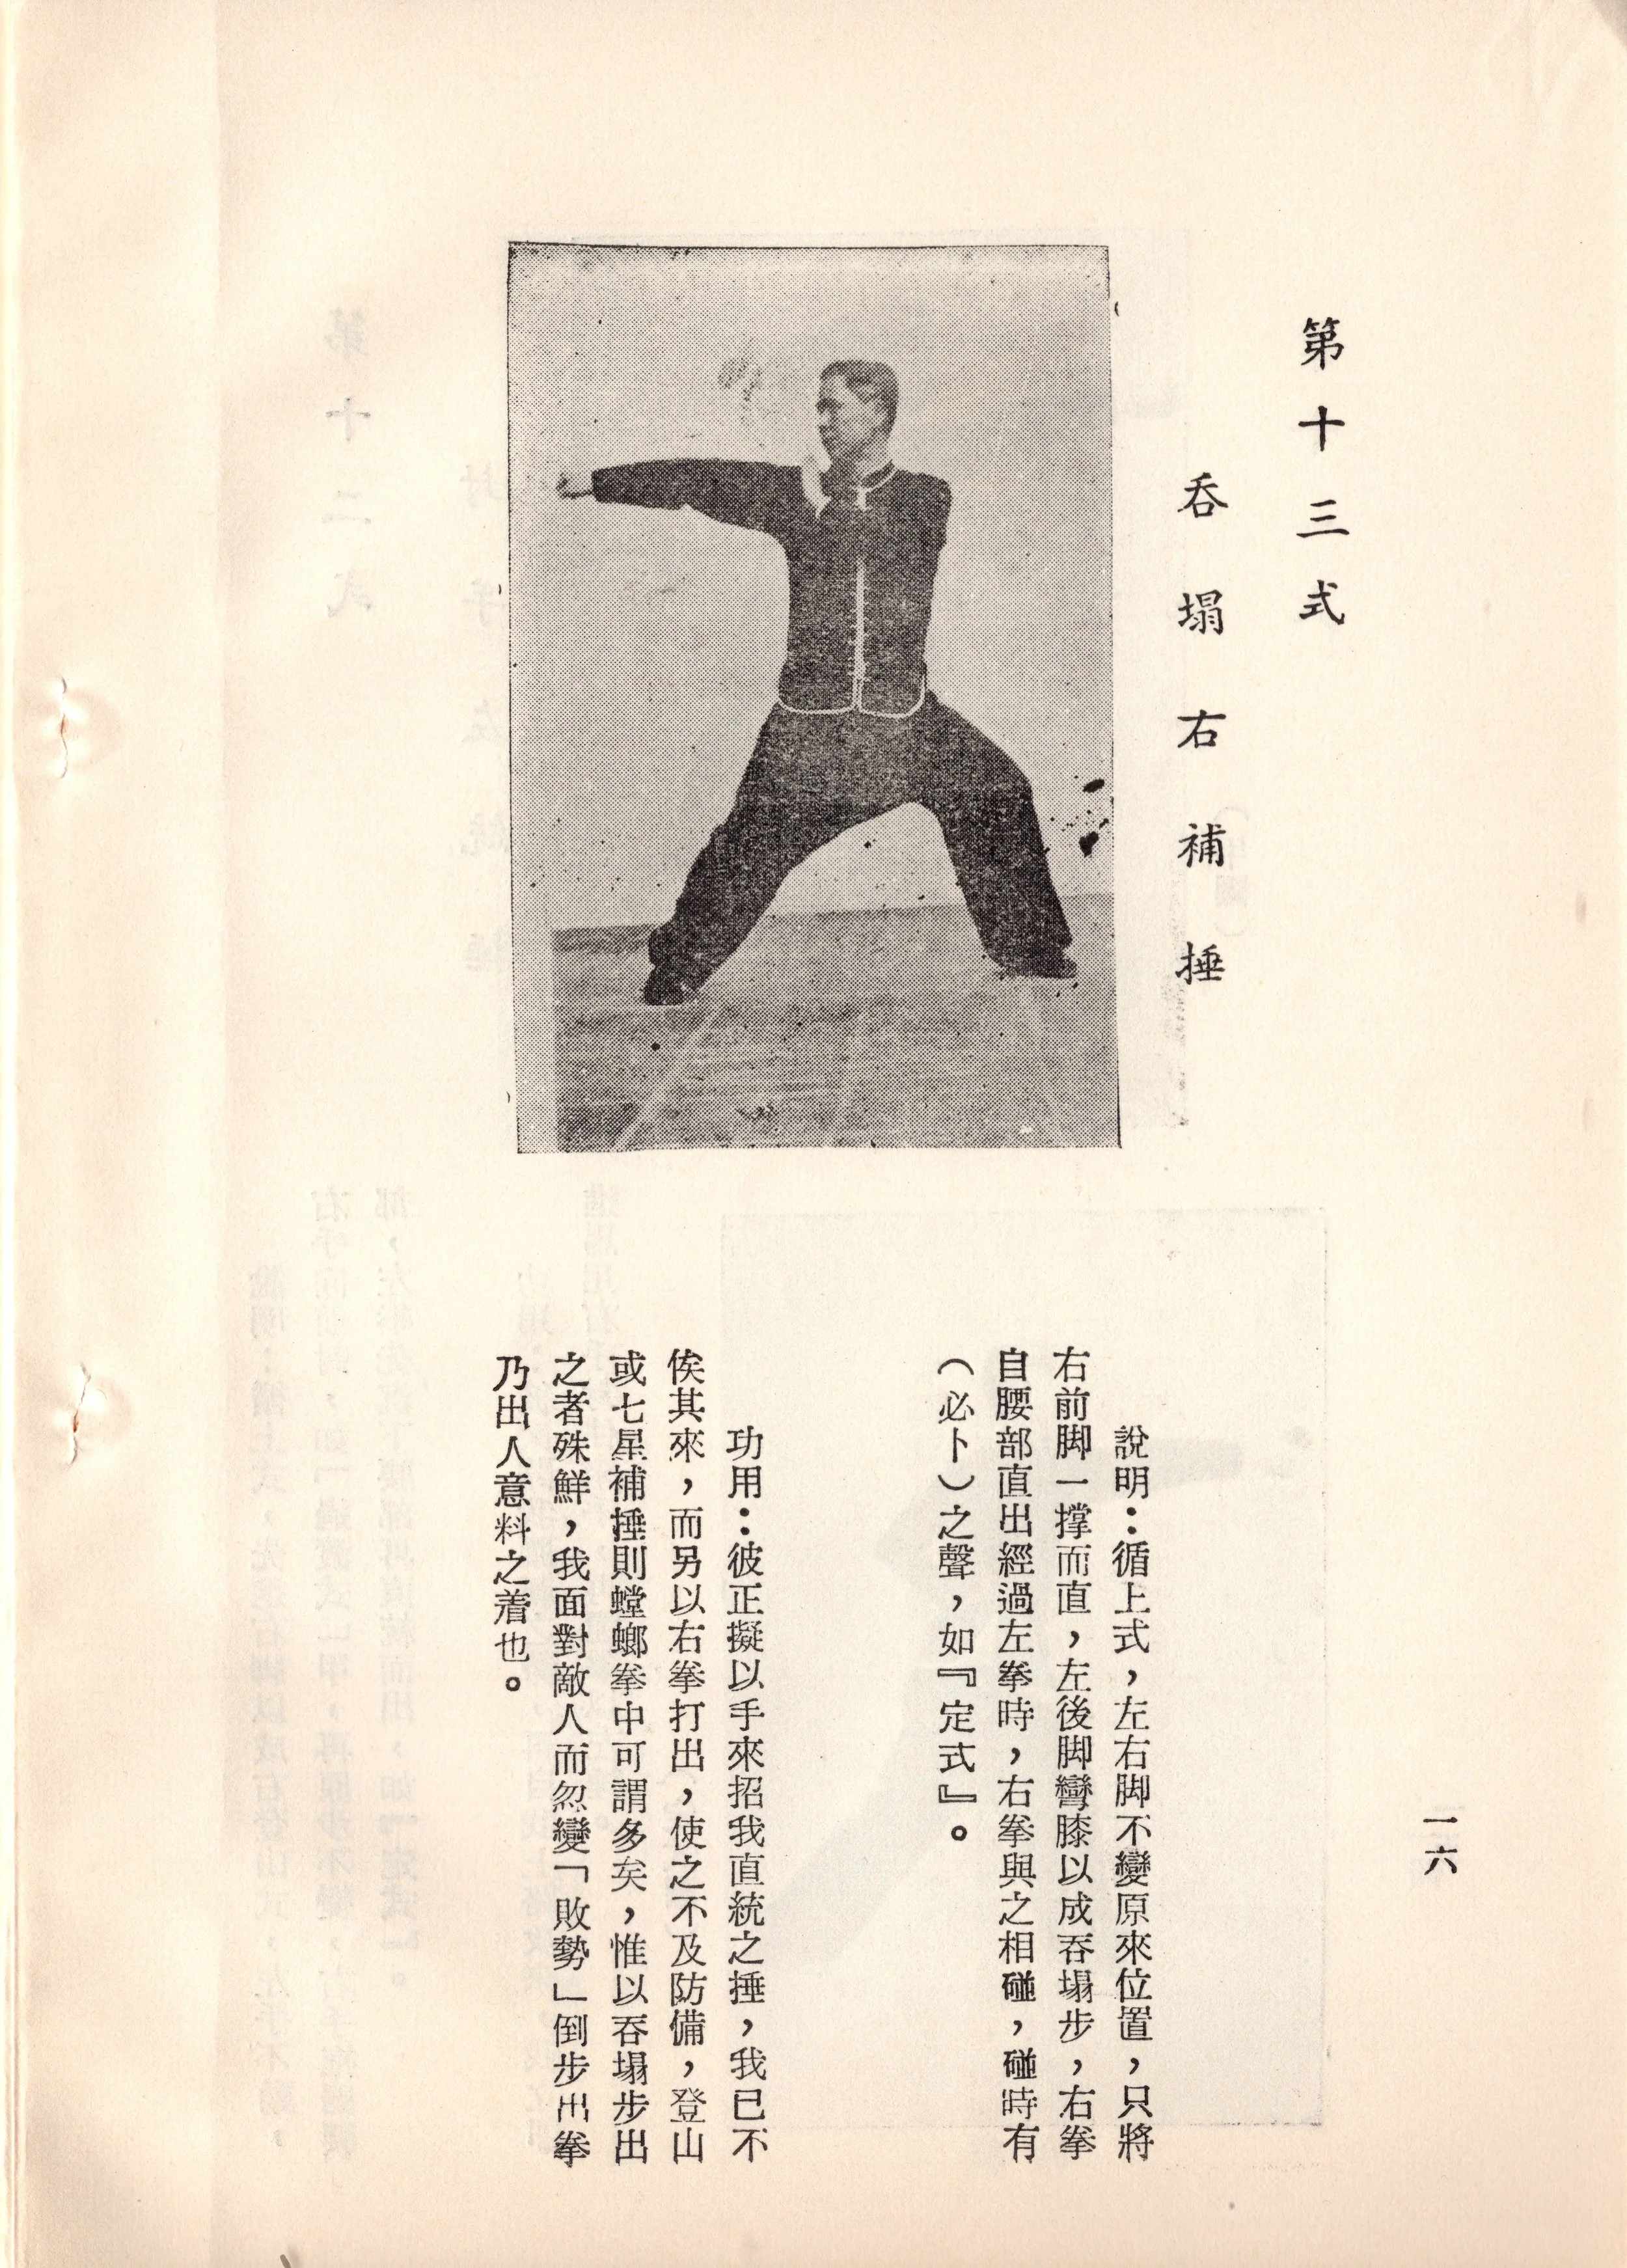 第十三式
吞塌右補捶
一六
說明：循上式，左右脚不變原來位置，只將
右前脚一撑而直，左後脚彎膝以成吞塌步，右拳
自腰部直出經過左拳時，右拳與之相碰，碰時有
（必卜）之聲，如『定式』。
功用：彼正擬以手來招我直統之捶，我已不
俟其來，而另以右拳打出，使之不及防備，登山
或七星補捶則螳螂拳中可謂多矣，惟以吞塌步出
之者殊鮮，我面對敵人而忽變「敗勢」倒步出拳
乃出人意料之着也。